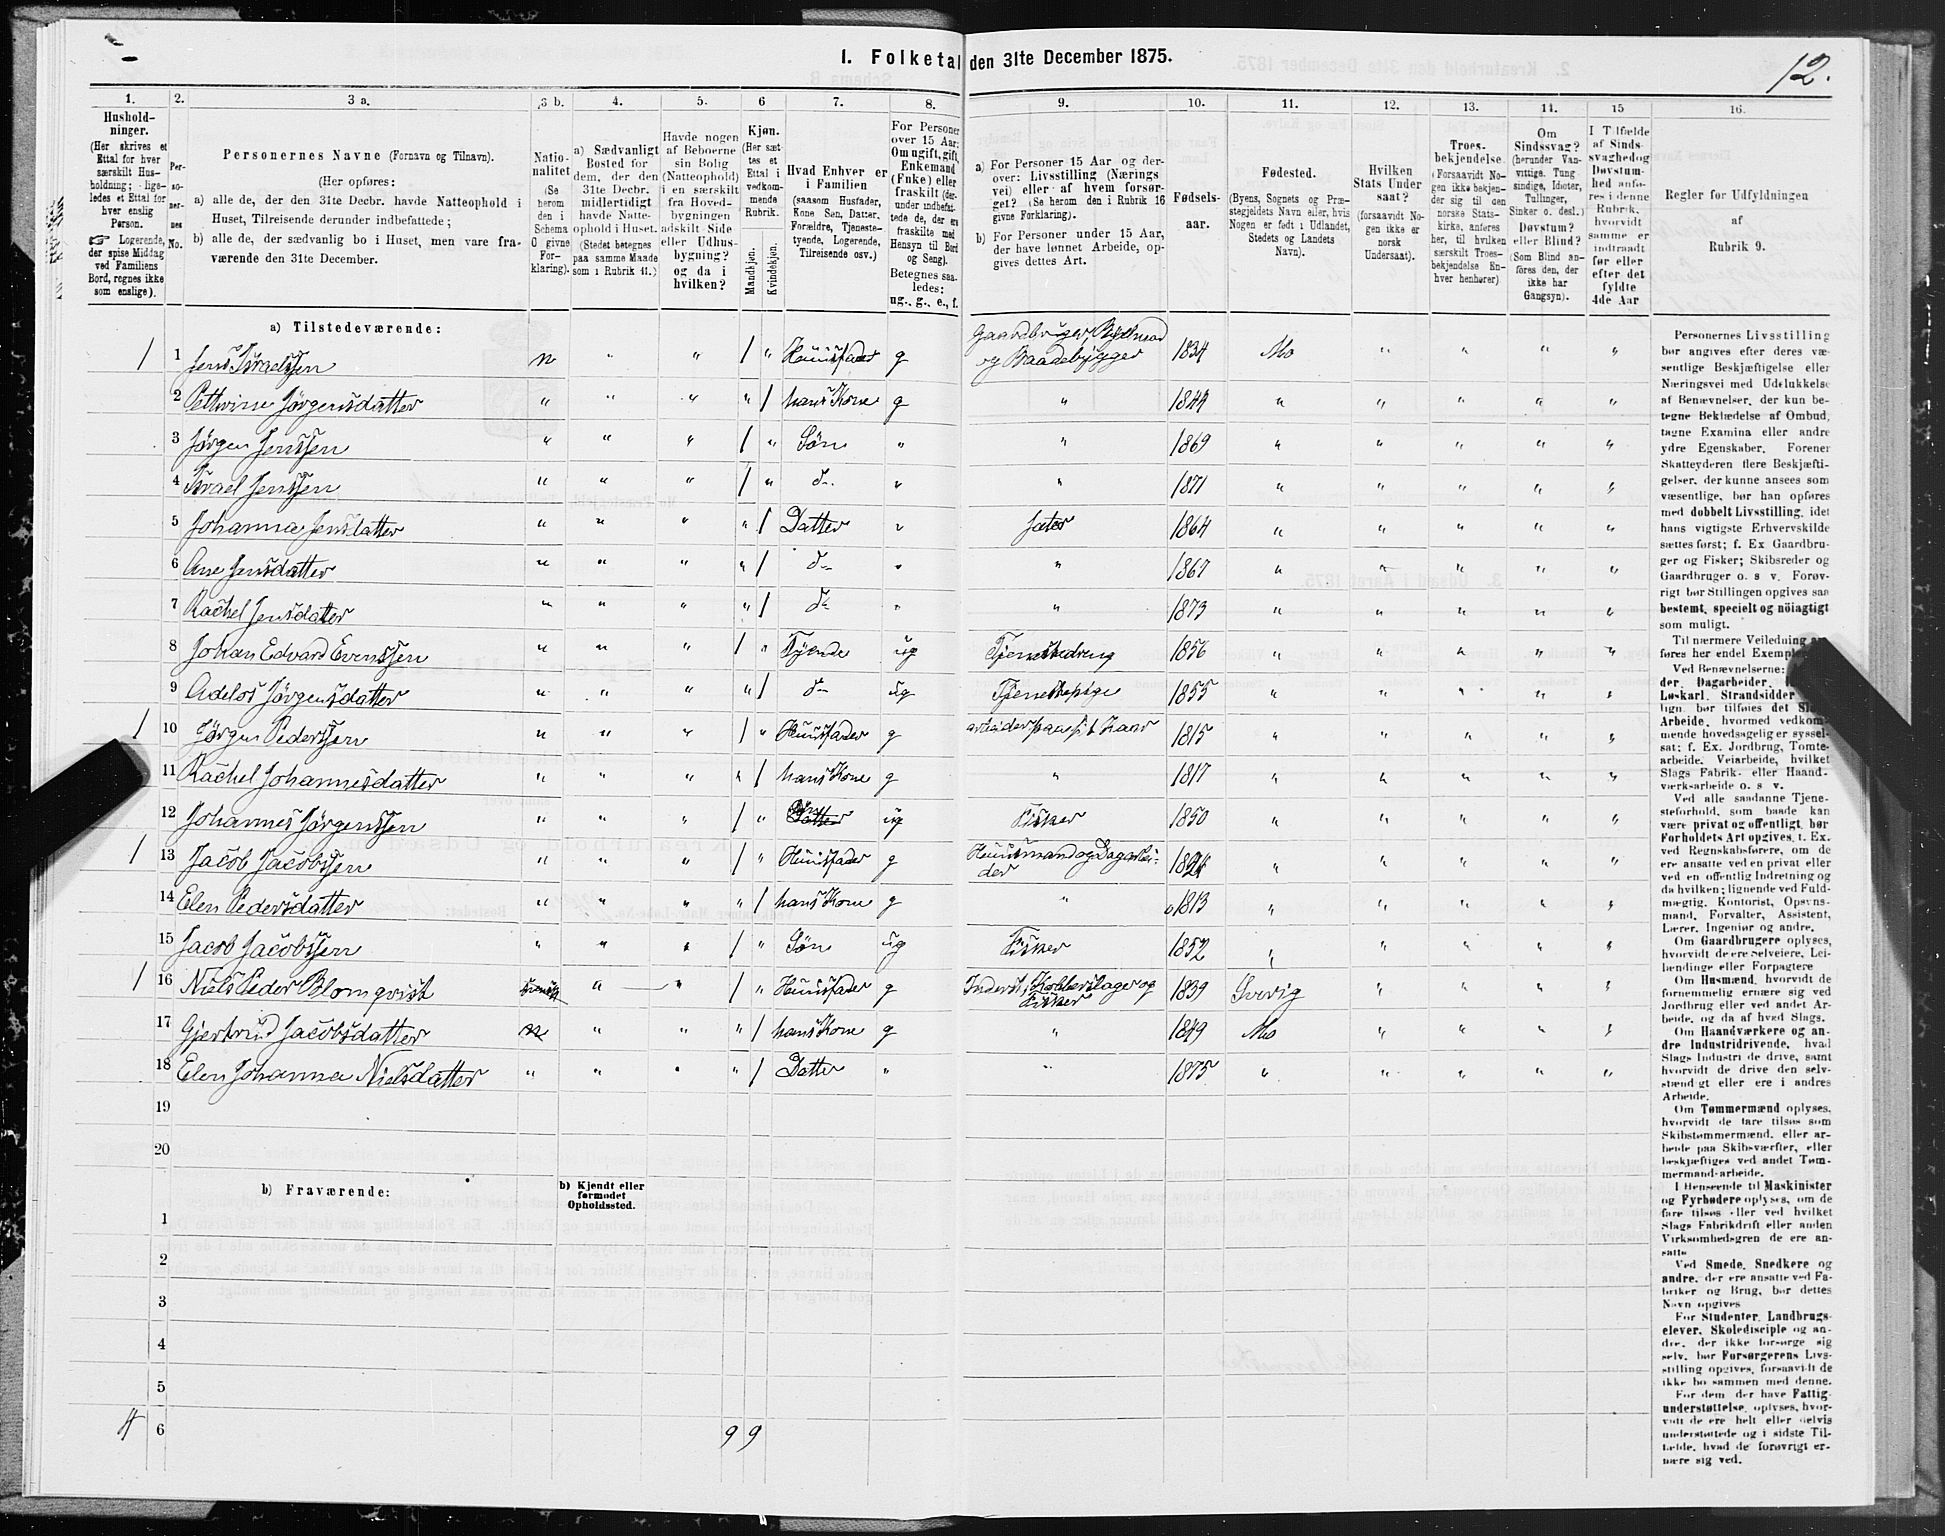 12.
I. Folketal den 31te December 1875.
1. 2. 3 a. 3 b. 4. 5. 6 7. 8. 9. 10. 11. 12. 13. 14. 15 16.
Hushold-
ninger.
(Her skrives et
Ettal for hver
særskilt Hus-
holdning; lige-
ledes et Ettal for
hver enslig
Person.
☞ Logerende,
der spise Middag
ved Familiens
Bord, regnes ikke
som enslige).
Per-
so-
ner-
nes
No.
Personernes Navne (Fornavn og Tilnavn).
(Her opføres:
a) alle de, der den 31te Decbr. havde Natteophold i
Huset, Tilreisende derunder indbefattede;
b) alle de, der sædvanlig bo i Huset, men vare fra-
værende den 31te December.
Natio-
nalitet
(Se
herom
den i
Schema
O givne
For-
klaring).
a) Sædvanligt
Bosted for
dem, der den
31te Decbr.
midlertidigt
havde Natte-
ophold i Huset.
(Stedet betegnes
paa samme Maade
som i Rubrik 11.)
Havde nogen
af Beboerne
sin Bolig
(Natteophold)
i en særskilt
fra Hoved-
bygningen
adskilt Side
eller Udhus-
bygning?
og da i
hvilken?
Kjøn.
(Her sæt-
tes et
Ettal i
vedkom-
mende
Rubrik.
Mandkjøn.
Kvindekjøn.
Hvad Enhver er
i Familien
(saasom Husfader,
Kone Søn, Datter,
Forældre, Tjeneste-
tyende, Logerende,
Tilreisende osv.)
For Personer
over 15 Aar:
Om ugift, gift,
Enkemand
(Enke) eller
fraskilt (der-
under indbefat-
tede de, der ere
fraskilte med
Hensyn til Bord
og Seng).
Betegnes saa-
ledes:
ug., g., e., f.
a) For Personer 15 Aar og der-
over: Livsstilling (Nærings
vei) eller af hvem forsør-
get? (Se herom den i Rubrik 16
givne Forklaring).
b) For Personer under 15 Aar,
der have lønnet Arbeide, op-
gives dettes Art.
Fødsels-
aar.
Fødested.
(Byens, Sognets og Præ-
stegjeldets Navn eller, hvis
Nogen er født i Udlandet,
Stedets og Landets
Navn).
Hvilken
Stats Under
saat?
(forsaavidt No-
gen ikke er
norsk
Undersaat).
Troes-
bekjendelse.
(Forsaavidt No-
gen ikke bekjen-
der sig til den
norske Stats-
kirke, anføres
her, til hvilken
særskilt Troes-
bekjendelse En-
hver henhører)
Om
Sindssvag?
(herunder Van-
vittige. Tung
sindige, Idioter,
Tullinger,
Sinker o. desl.)
Døvstum?
eller Blind?
(Som Blind an-
føres den, der
ikke har
Gangsyn).
I Tilfælde
af Sinds-
svaghed og
Døvstum-
hed anfø-
res i denne
Rubrik,
hvorvidt
samme er
indtraadt
før eller
efter det
fyldte
4de Aar
Regler for Udfyldningen
af
Rubrik 9.
a) Tilstedeværende:
1 1 Jens Israelssen n " " 1 " Huusfader g Gaardbruger, Bygdmand og Baadebygger 1834 Mo " " " "
2 Pethrine Jørgensdatter " " " " 1 hans Kone g " 1844 " " " " "
3 Jørgen Jenssen " " " 1 " Søn " " 1869 " " " " "
4 Israel Jenssen " " " 1 " d- " " 1871 " " " " "
5 Johanna Jensdatter " " " " 1 Datter " 1864 " " " " "
6 Ane Jensdatter " " " " 1 d- " " 1867 " " " " "
7 Rachel Jensdatter " " " " 1 d- " " 1873 " " " " "
8 Johan Edvard Evenssen " " " 1 " Tyende ug Tjenestedreng 1856 " " " " "
9 Adelos Jørgensdatter " " " " 1 d- ug Tjenestepige 1855 " " " " "
1 10 Jørgen Pederssen " " " 1 " Huusfader g 1815 " " " " "
11 Rachel Johannesdatter " " " " 1 hans Kone g " 1817 " " " " "
12 Johannes Jørgenssen " " " 1 " Søn ug Fisker 1850 " " " " "
1 13 Jacob Jacobssen " " " 1 " Huusfader g Huusmand og Dagarbei-
der " " " " "
14 Elen Pedersdatter " " " " 1 hans Kone g " 1813 " " " " "
15 Jacob Jacobssen " " " 1 " Søn ug Fisker 1852 " " " " "
1 16 Niels Peder Blomqvist " " 1 " Huusfader g Inderst, Kobberslager og
Fisker 1839 Sverig " " " "
17 Gjertrud Jacobsdatter n " " " 1 hans Kone g " 1849 Mo " " " "
18 Elen Johanna Nielsdatter " " " " 1 Datter " " 1875 " " " " "
19
20
b) Fraværende:
b) Kjendt eller
formodet
Opholdssted.
1
2
3
4
5
4 6 9 9
Personernes Livsstilling
bør angives efter deres væ-
sentlige Beskjæftigelse eller
Næringsvei med Udelukkelse
af Benævnelser, der kun be-
tegne Beklædelse af Ombud,
tagne Examina eller andre
ydre Egenskaber. Forener
Skatteyderen flere Beskjæfti-
gelser, der kunne ansees som
væsentlige, bør han opføres
med dobbelt Livsstilling, idet
hans vigtigste Erhvervskilde
sættes først; f. Ex Gaardbru-
ger og Fisker; Skibsreder og
Gaardbruger o. s v. Forøv-
rigt bør Stillingen opgives saa
bestemt, specielt og nöiagtigt
som muligt.
Til nærmere Veiledning an-
føres her endel Exempler
Ved Benævnelserne:
der, Dagarbeider,
Løskarl, Strandsidder
lign. bør tilføies det Slags
Arbeide, hvormed vedkom-
mende hovedsagelig er syssel-
sat; f. Ex. Jordbrug, Tomte-
arbeide, Veiarbeide, hvilket
Slags Fabrik- eller Haand-
værksarbeide o. s v.
Ved alle saadanne Tjene-
steforhold, som baade kan
være privat og offentligt, bør
Forholdets Art opgives, t. Ex.
ved Regnskabsførere, om de
ere ansatte ved en privat eller
ved en offentlig Indretning og
da hvilken; lignende ved Fuld-
mægtig, Kontorist, Opsyns-
mand, Forvalter, Assistent,
Lærer, Ingeniør og andre.
Om Gaardbrugere oplyses,
hvorvidt de ere Selveiere, Lei-
lændinge eller Forpagtere
Om Husmænd, hvorvidt de
fornemmelig ernære sig ved
Jordbrug eller ved andet Ar-
beide, og da af hvad Slags.
Om Haandværkere og an-
dre Industridrivende, hvad
Slags Industri de drive, samt
hvorvidt de drive den selv-
stændigt eller ere i andres
Arbeide.
Om Tømmermænd oplyses,
hvorvidt de fare tilsøs som
Skibstømmermænd, eller ar-
beide paa Skibsværfter, eller
beskjæftiges ved andet Tøm-
mermand-arbeide.
I Henseende til Maskinister
og Fyrbødere oplyses, om de
fare tilsøs eller ved hvilket
Slags Fabrikdrift eller anden
Virksomhedsgren de ere an-
satte
Ved Smede, Snedkere og
andre, der ere ansatte ved Fa-
briker og Brug, bør dettes
Navn opgives
For Studenter, Landbrugs-
elever, Skoledisciple og an-
dre, der ikke forsørge sig
selv, bør Forsørgerens Livs-
stilling opgives, forsaavidt de
ikke bo sammen med denne.
For dem, der have Fattig-
understøttelse, oplyses, hvor-
vidt de ere helt eller delvis
understøttede og i sidste Til-
fælde, hvad de forøvrigt er-
nære sig ved.